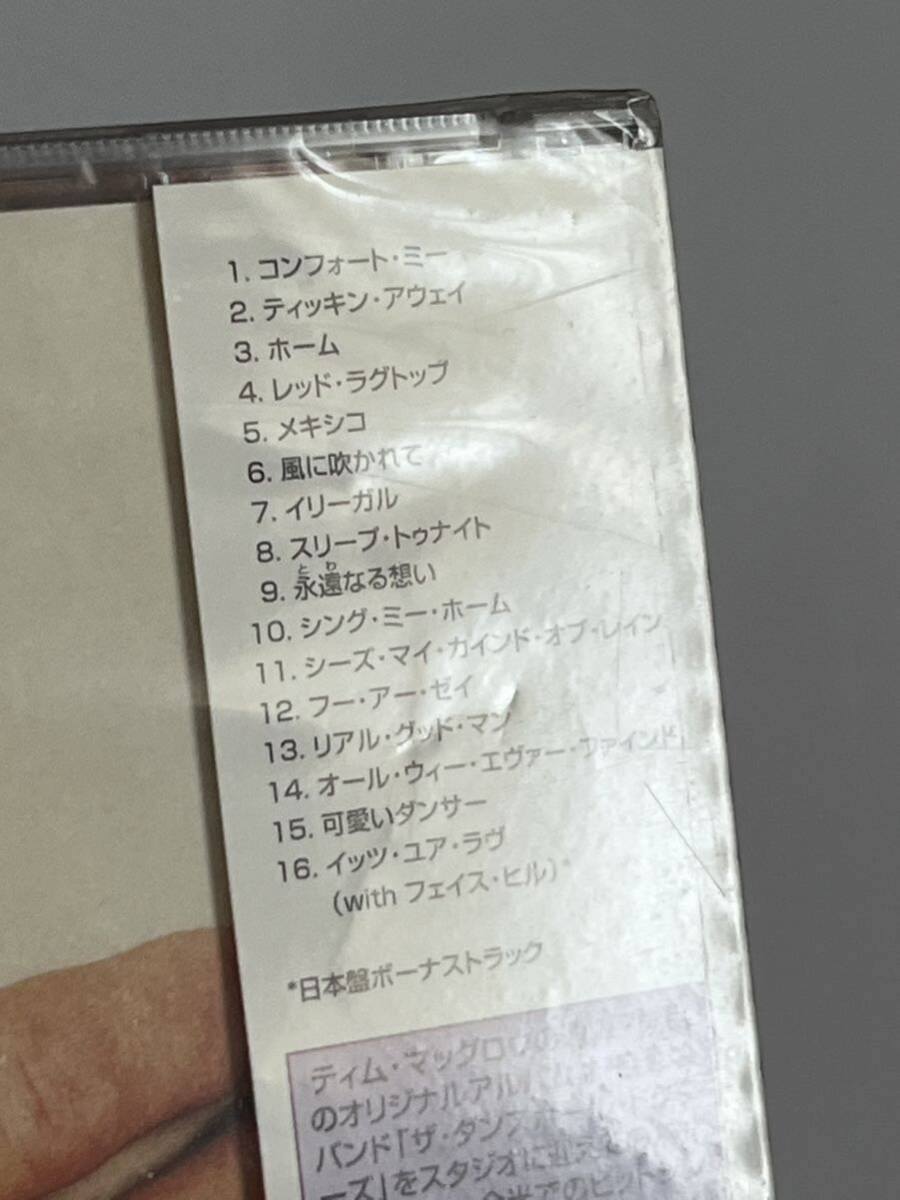 1. コンフォート・ミー
2. ティッキン・アウェイ
3. ホーム
4. レッド・ラグトップ
5. メキシコ
6. 風に吹かれて
7. イリーガル
8. スリープ・トゥナイト
とわ
9. 永遠なる想い
10. シング・ミー・ホーム
11. シーズ・マイ・カインド・オブ・レイン
12. フー・アー・ゼイ
13. リアル・グッド・マン
14. オール・ウィー・エヴァー・ファインド
15. 可愛いダンサー
16. イッツ・ユア・ラヴ
(with フェイス・ヒル)*
*日本盤ボーナストラック
ティム・マッグロウの
のオリジナルアル
バンド「ザ・ダンス
ーズ」をスタジオに迎え
のヒット